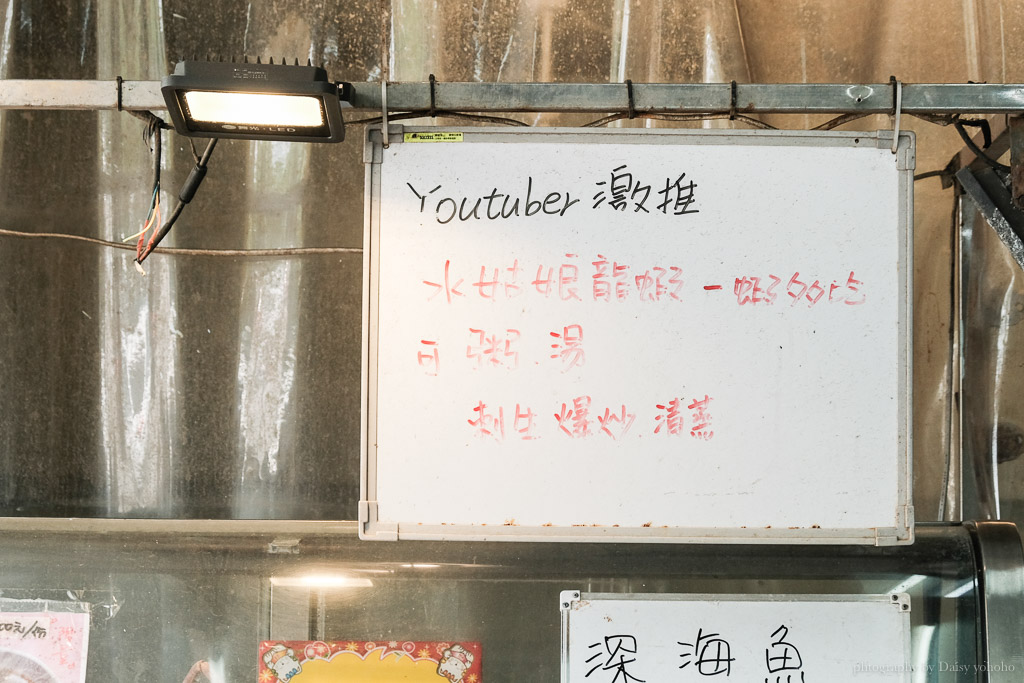 舞光 LED
Youtuber 激推
水姑娘龍蝦 一蝦多吃
可 粥 湯
刺生 爆炒 清蒸
00元/份
深海魚
photography by Daisy yohoho